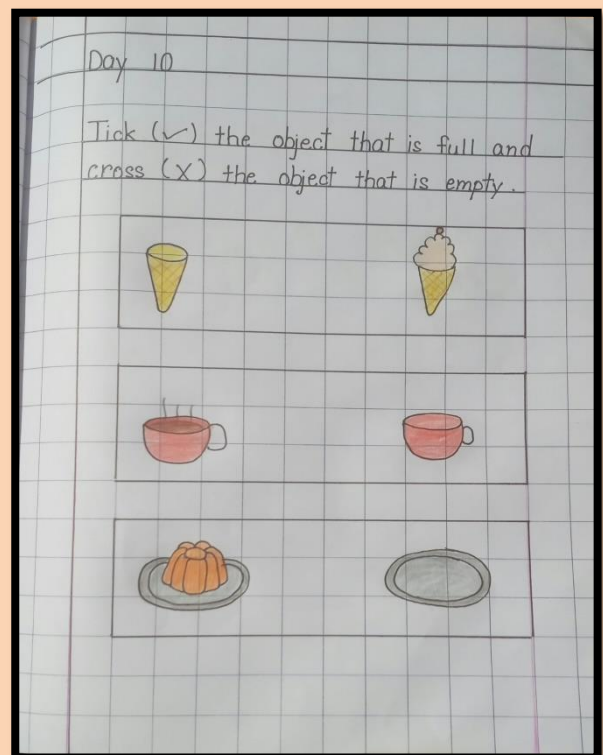 Day 10
Tick (✓) the object that is full and
cross (X) the object that is empty.